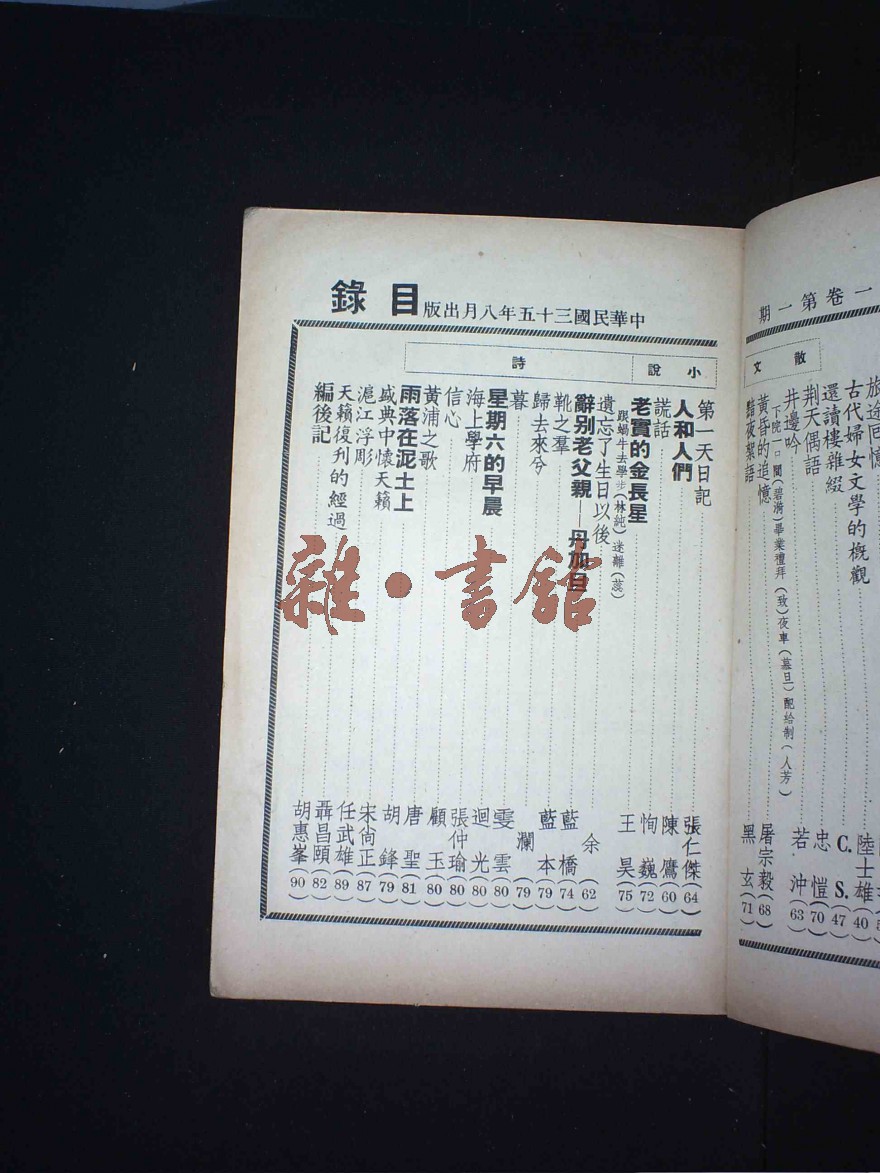 一卷第一期
散文
旅途回憶
古代婦女文學的概觀 陸士雄(40)
還讀樓雜綴 C. S.(47)
荆天偶語 忠愷(70)
井邊吟 若沖(63)
下院一口聞(碧漪)畢業禮拜(致)夜車(墓旦)配給制(人芳)
黃昏的追憶 屠宗毅(68)
黯夜絮語 黑玄(71)
目錄
中華民國三十五年八月出版
小說
詩
第一天日記 張仁傑(64)
人和人們 陳鷹(60)
謊話 恂巍(72)
老實的金長星 王昊(75)
跟蝸牛去學步(林純)迷離(蕊)
遺忘了生日以後 余(62)
辭別老父親——丹加旦 藍橋(74)
靴之羣 藍本(79)
歸去來兮 瀾(79)
暮 雯雲(80)
星期六的早晨 迴光(80)
海上學府 張仲瑜(80)
信心 顧玉(80)
黃浦之歌 唐聖(81)
雨落在泥土上 胡鋒(79)
盛典中懷天籟 宋尙正(87)
滬江浮彫 任武雄(89)
天籟復刋的經過 聶昌頤(82)
編後記 胡惠峯(90)
雜·書館